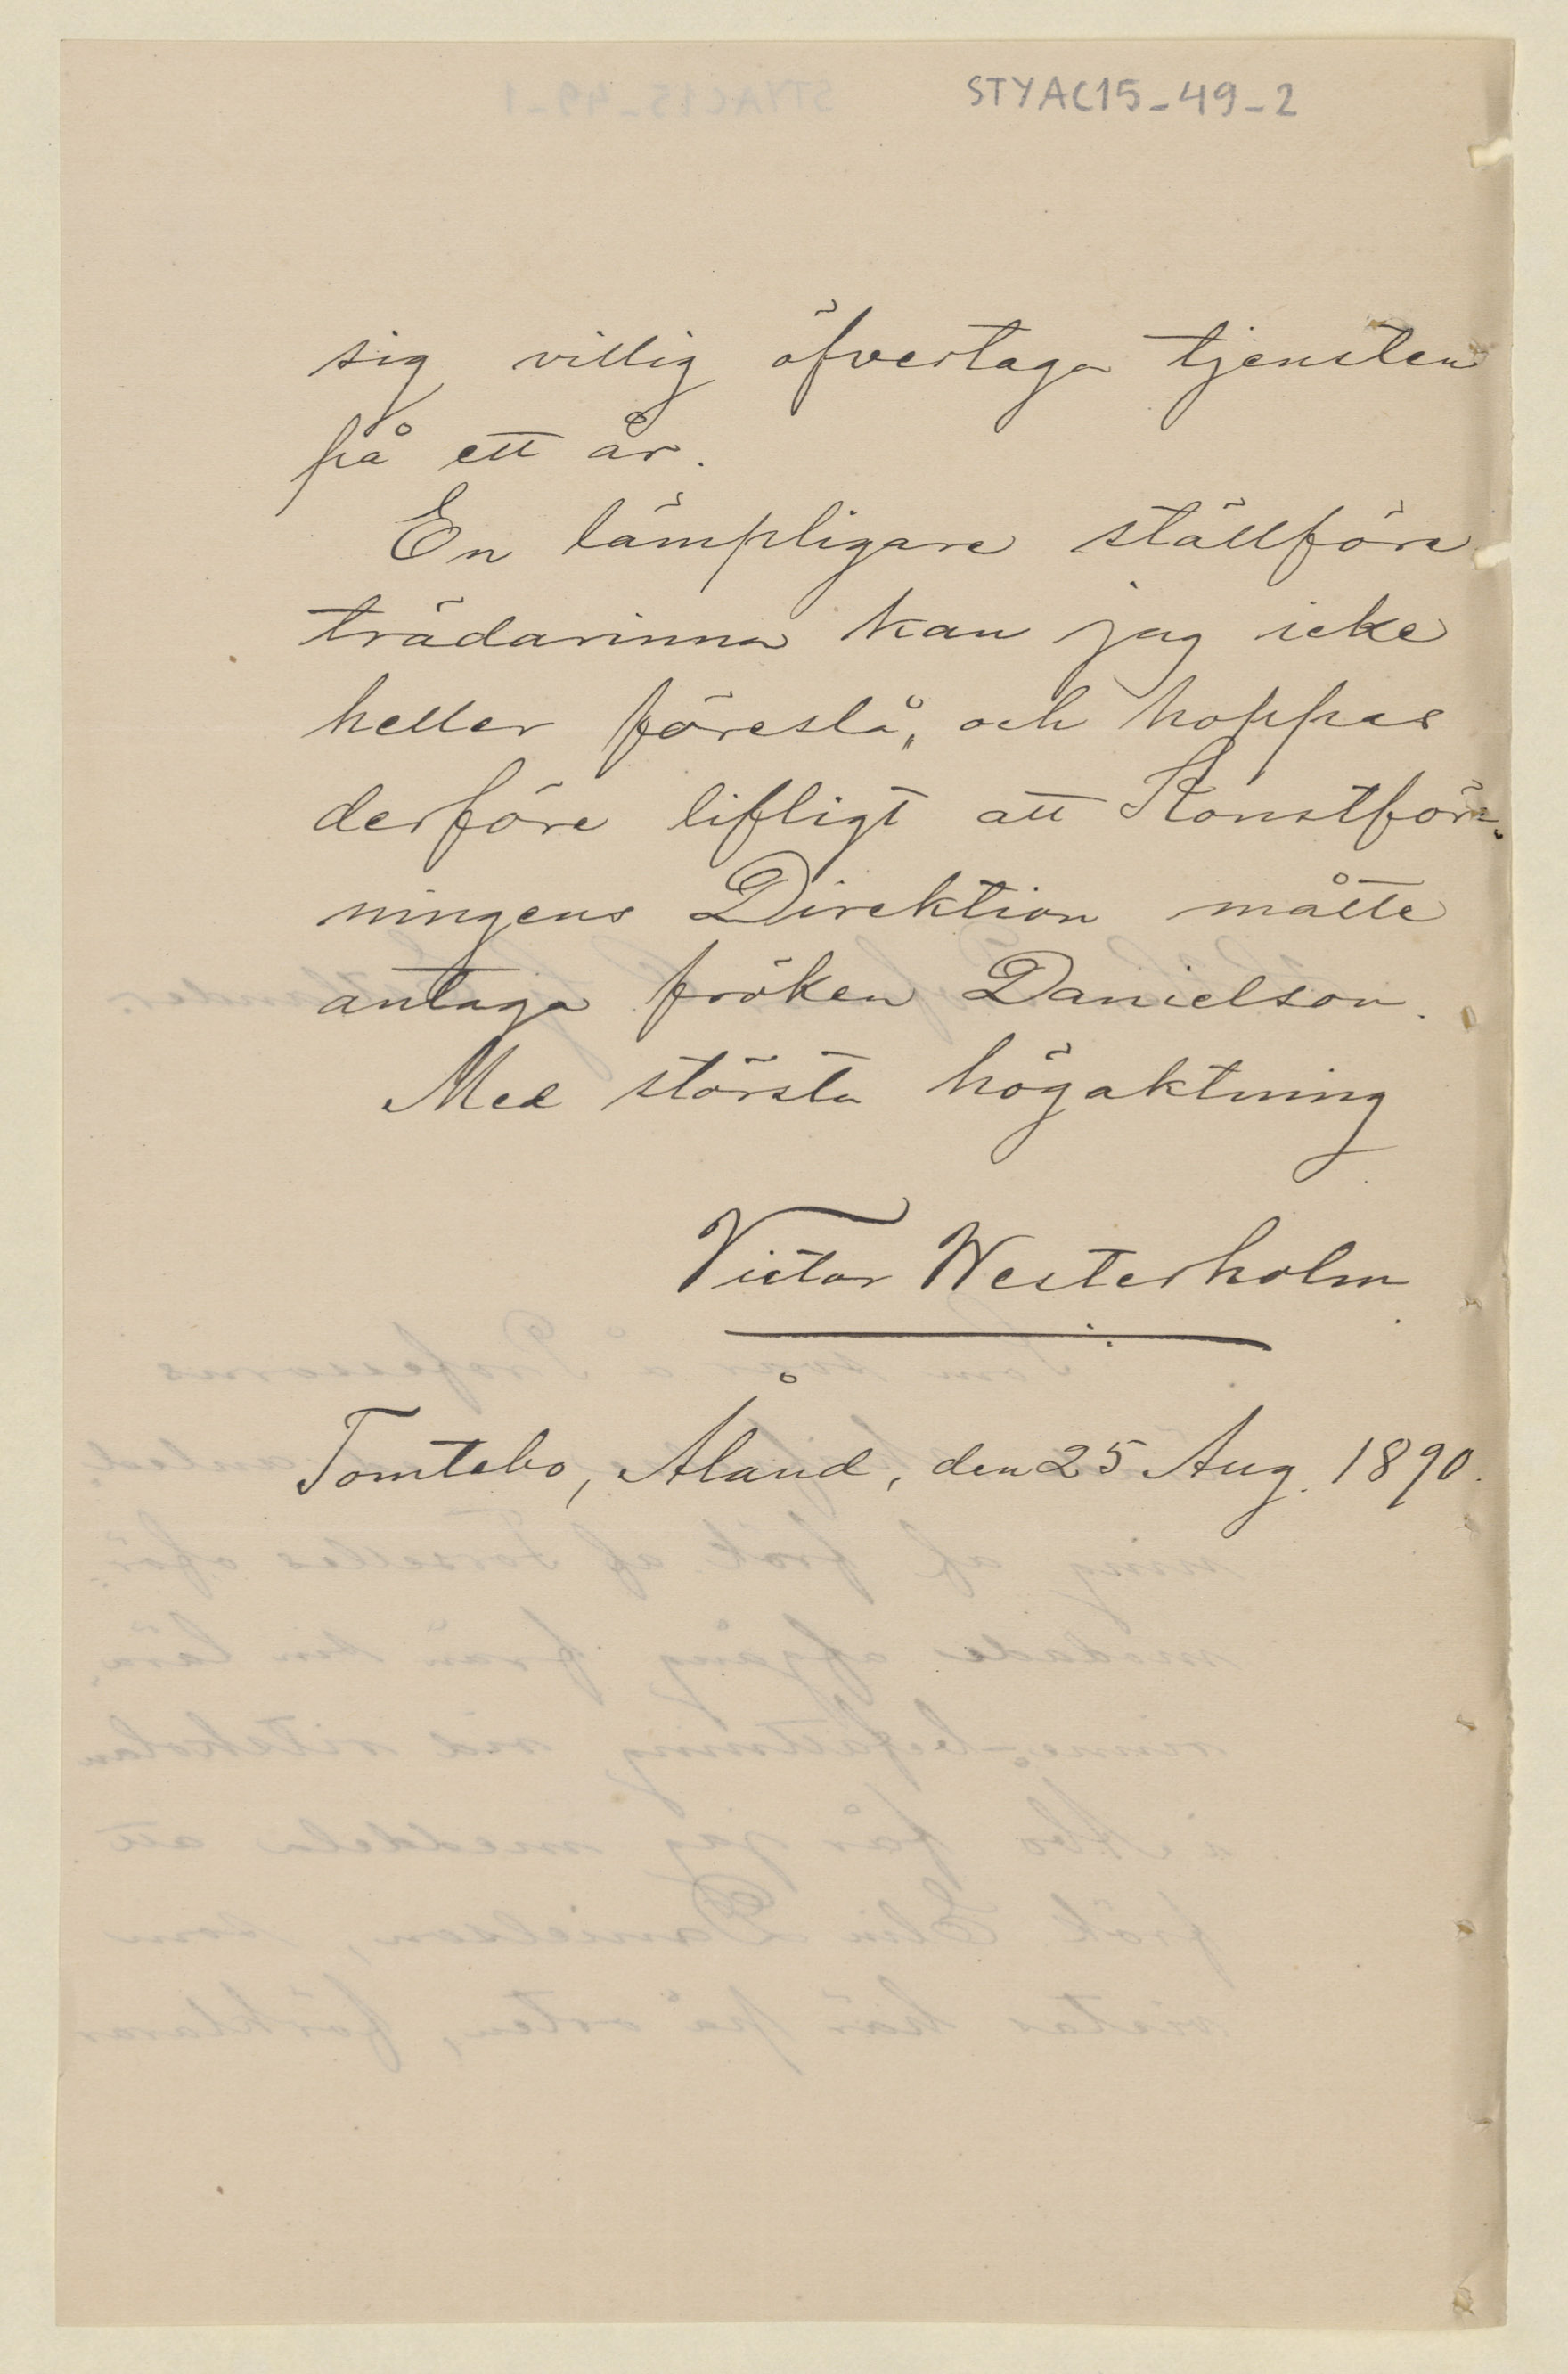 STYAC15_49_2
sig villig öfvertaga tjensten
på ett år.
En lämpligare ställföre
trädarinna kan jag icke
heller föreslå, och hoppas
derföre lifligt att Konstför-
ningens Direktion måtte
antaga fröken Danielson.
Med största högaktning
Victor Westerholm
Tomtebo, Åland, den 25 Aug. 1890.